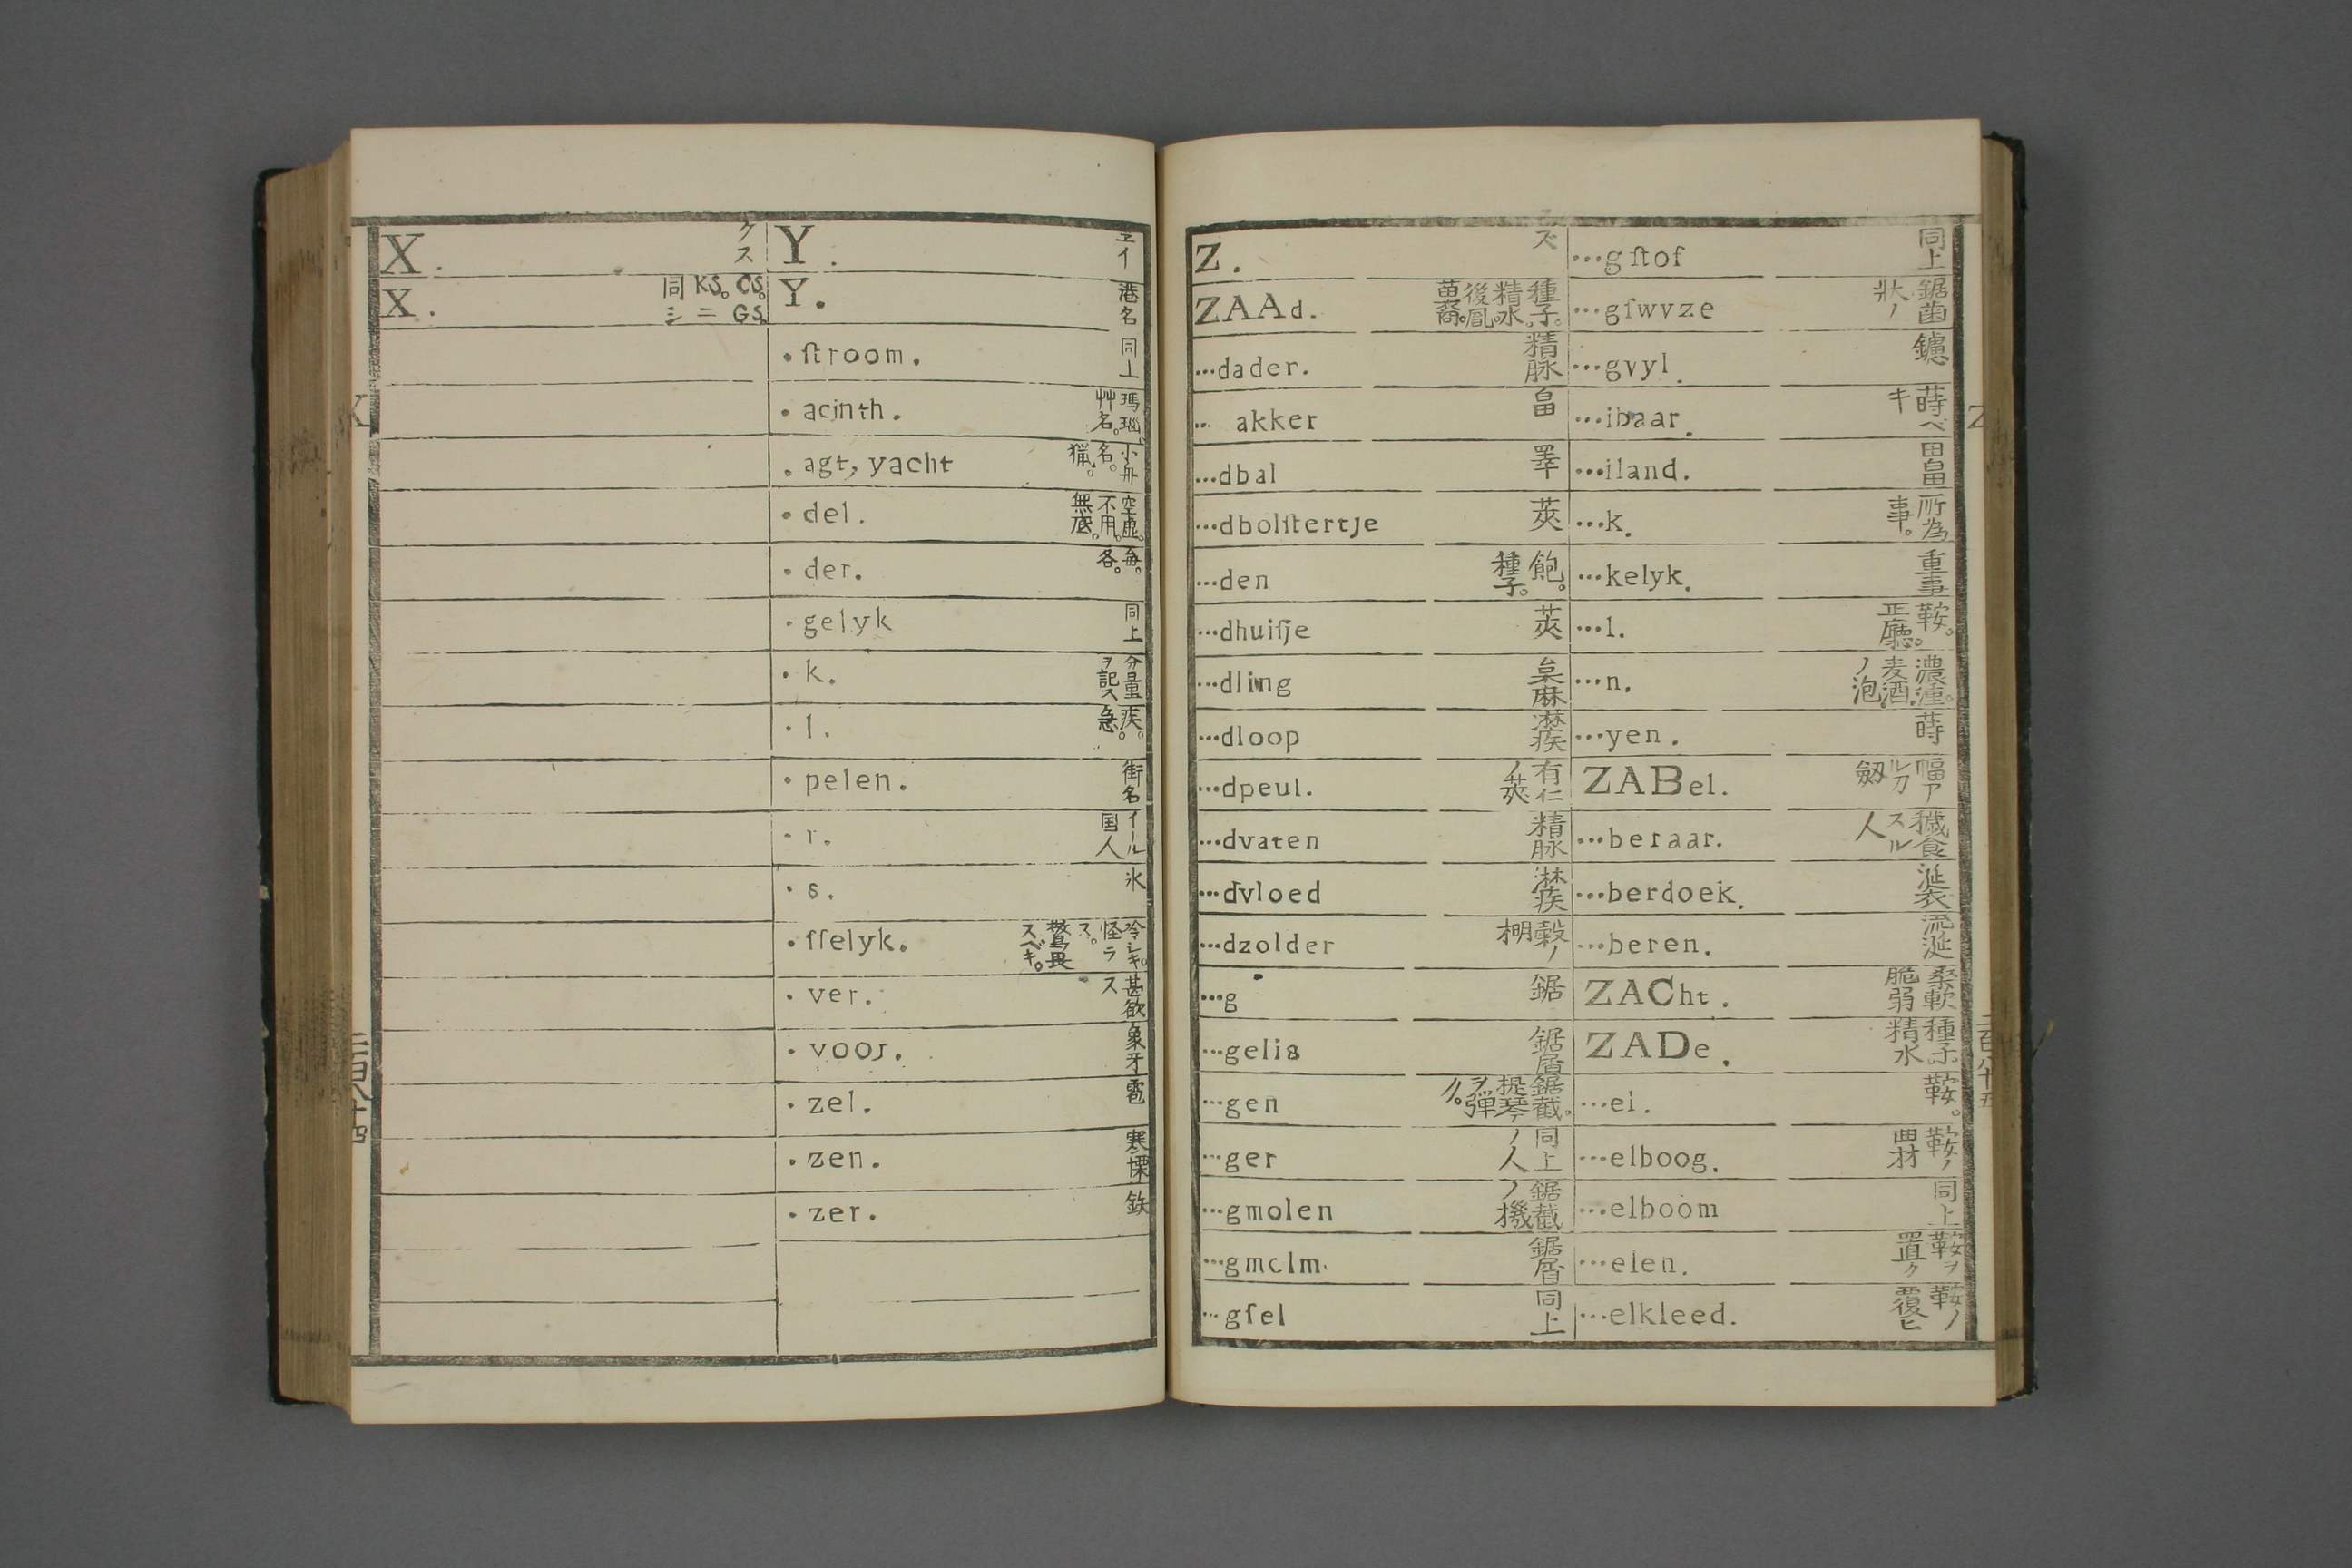 X. クス
X. CS。KS。GS。ニ同シ
Y. ヱイ
Y. 港名
・ſtroom. 同上
・acinth. 瑪瑙。艸名。
・agt, yacht 小舟名。獵。
・del. 空虚。不用。無底。
・der. 毎。各。
・gelyk 同上
・k. 分量ヲ記ス
・l. 疾。急。
・pelen. 街名
・r. イール国人
・s. 氷
・ſſelyk. 冷シキ。怪ラス。驚畏スベキ。
・ver. 甚欲ス
・voor. 象牙
・zel. 雹
・zen. 寒慄
・zer. 鉄
X
三百八十四
Z. ズ
ZAAd. 種子。精水。後胤。苗裔。
…dader. 精脉
… akker 畠
…dbal 睪
…dbolſtertje 莢
…den 飽。種子。
…dhuiſje 莢
…dling 枲麻
…dloop 淋疾
…dpeul. 有仁ノ莢
…dvaten 精脉
…dvloed 淋疾
…dzolder 穀ノ棚
…g 鋸
…gelis 鋸屑
…gen 鋸截。提琴ヲ弾ク。
…ger 同上ノ人
…gmolen 鋸截ノ機
…gmclm. 鋸屑
…gſel 同上
…gſtof 同上
…gſwvze 鋸歯ノ状
…gvyl. 鑢
…ibaar. 蒔ベキ
…iland. 田畠
…k. 所為。事。
…kelyk. 重事
…l. 鞍。正廳。
…n. 濃湩。麦酒ノ泡
…yen. 蒔
ZABel. 幅アル刀 劔
…beraar. 穢食スル人
…berdoek. 涎衣
…beren. 流涎
ZACht. 柔軟 脆弱
ZADe. 種子。精水
…ei. 鞍。
…elboog. 鞍ノ曲材
…elboom 同上
…elen. 鞍ヲ置ク
…elkleed. 鞍ノ覆ヒ
Z
三百八十五